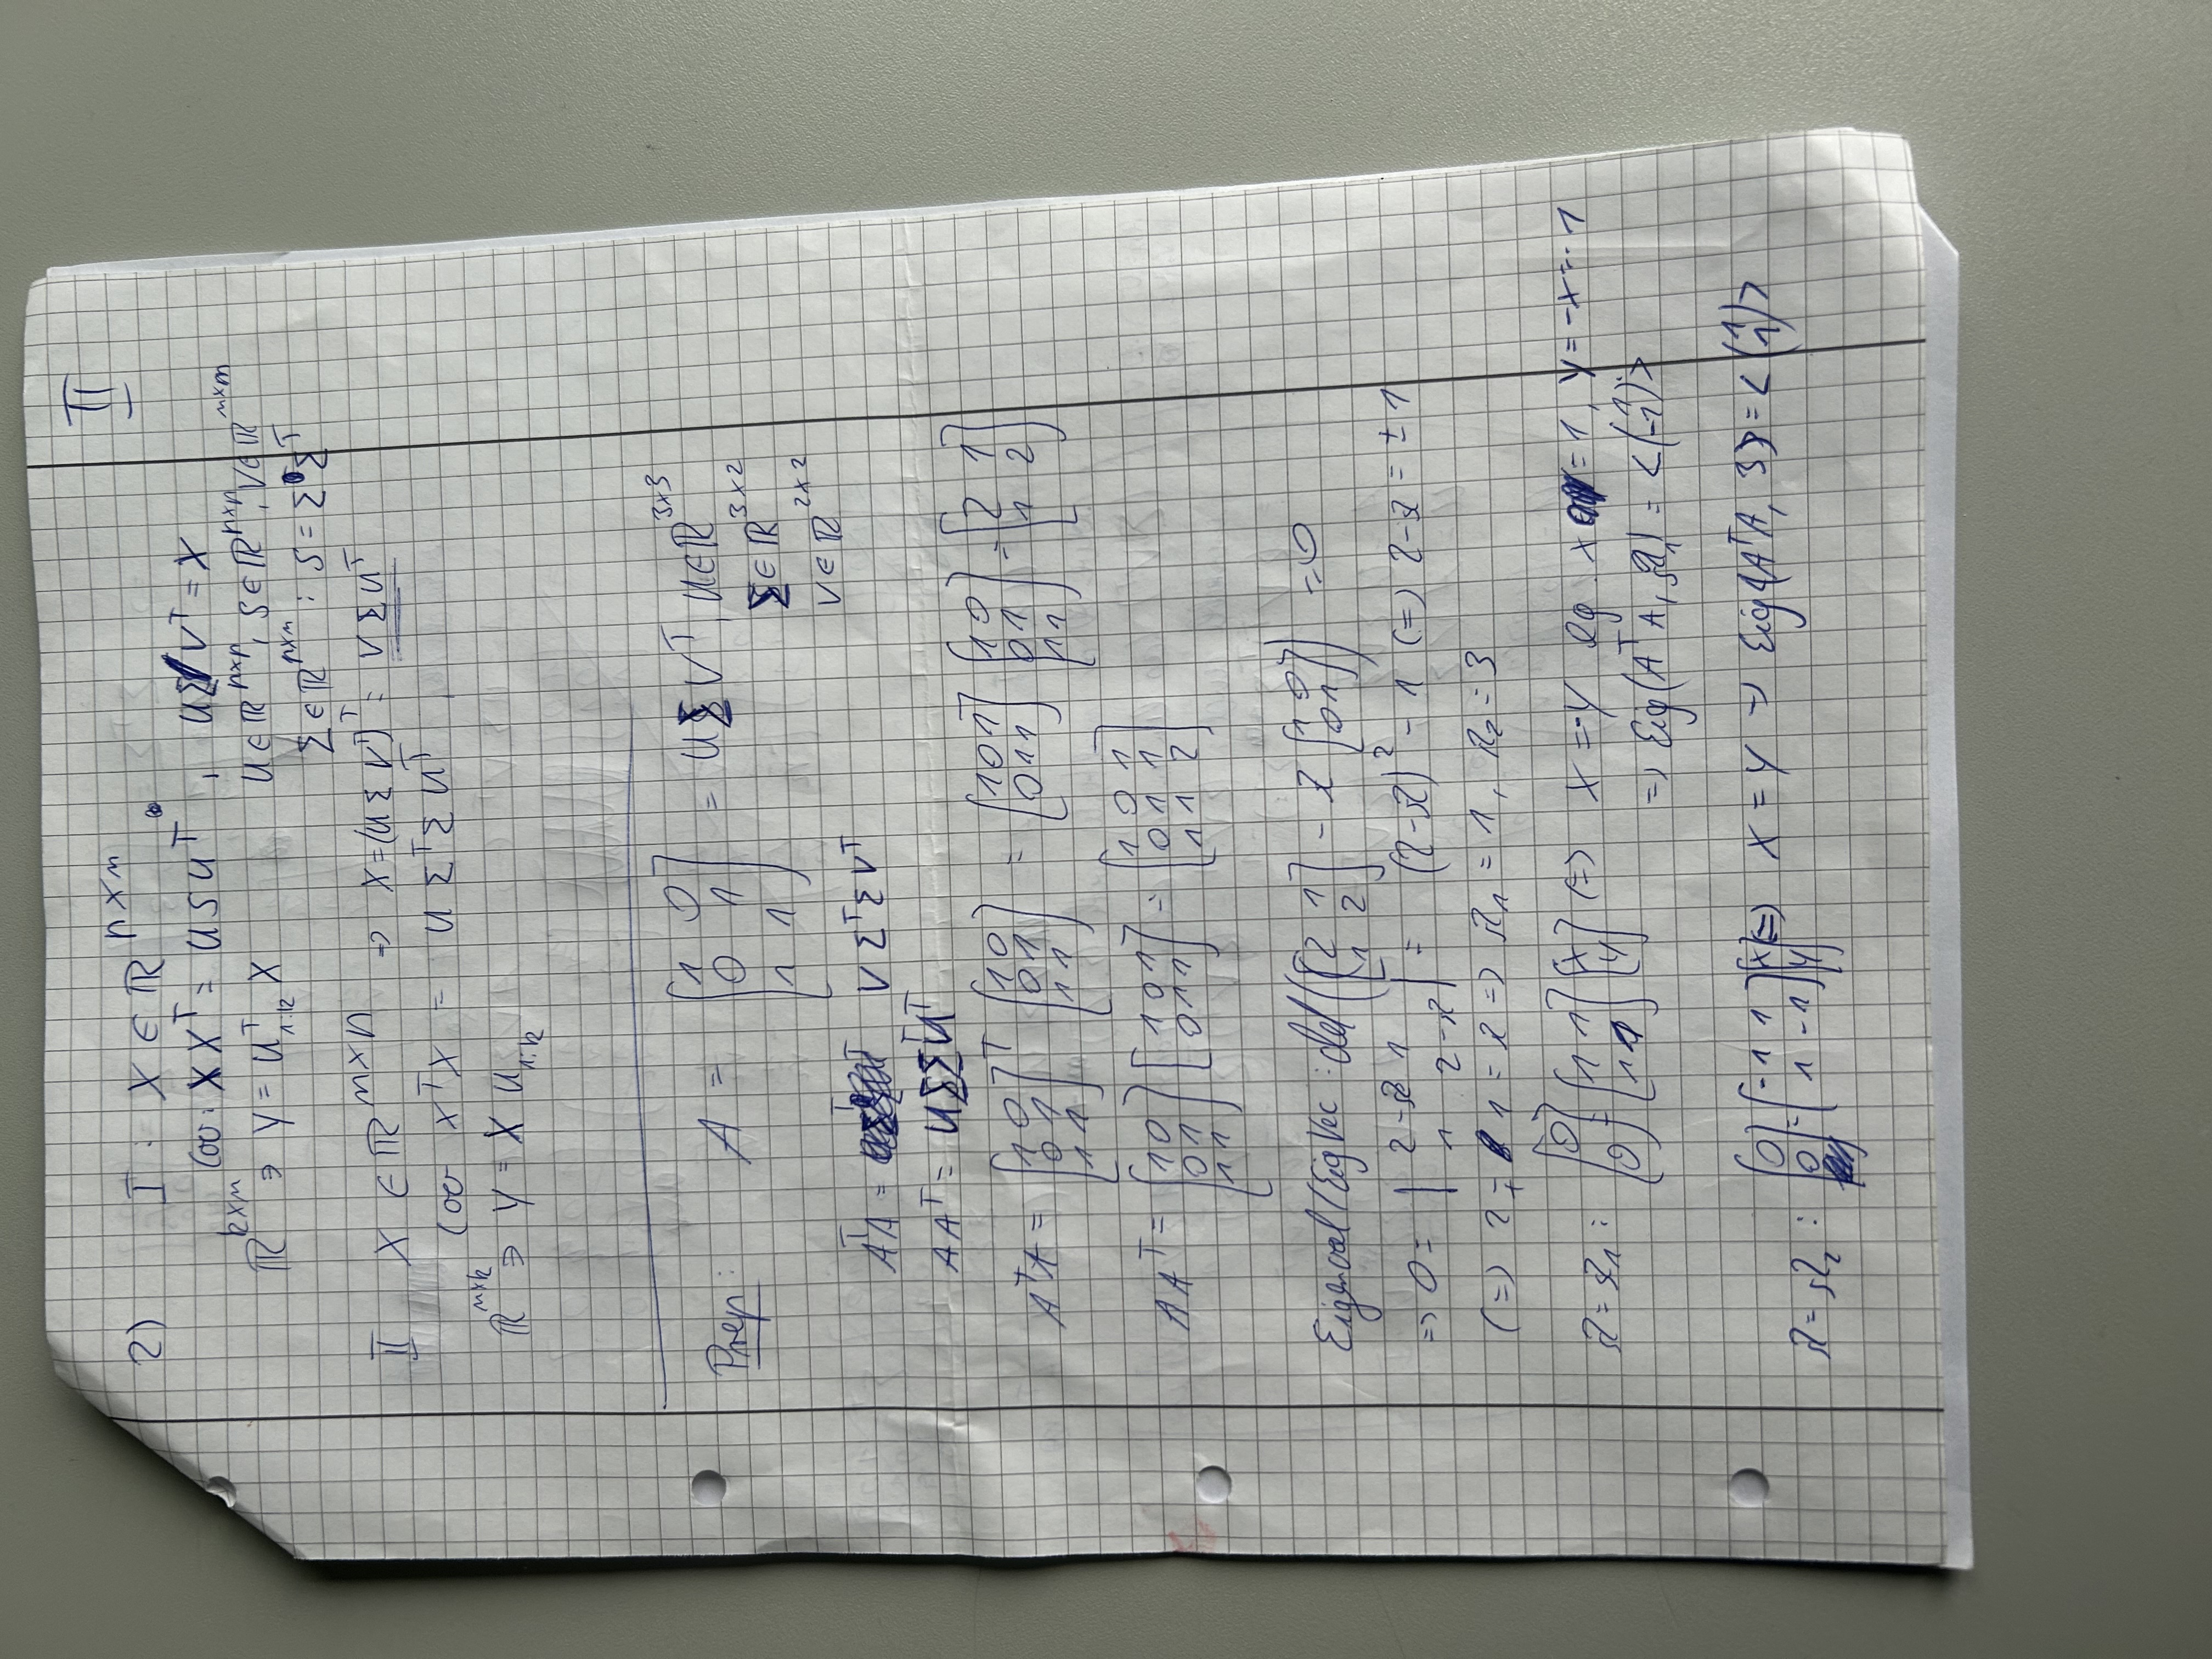 II
2) I : X ∈ ℝ^{n×m}
Cov: XX^T = USU^T , UΣV^T = X
ℝ^{k×m} ∋ Y = U^T_{1:k} X U ∈ ℝ^{n×n}, S ∈ ℝ^{n×n}, V ∈ ℝ^{m×m}
Σ ∈ ℝ^{n×m} : S = ΣΣ^T
II X ∈ ℝ^{m×n} → X = (UΣV^T)^T = VΣU^T
Cov X^T X = U Σ^T Σ U^T
ℝ^{m×k} ∋ Y = X U_{1:k}
Prep: A = [1 0; 0 1; 1 1] = UΣV^T, U ∈ ℝ^{3×3}
Σ ∈ ℝ^{3×2}
V ∈ ℝ^{2×2}
A^T A = V Σ^T Σ V^T
AA^T = UΣΣ^T U^T
A^T A = [1 0; 0 1; 1 1]^T [1 0; 0 1; 1 1] = [1 0 1; 0 1 1] [1 0; 0 1; 1 1] = [2 1; 1 2]
AA^T = [1 0; 0 1; 1 1] [1 0 1; 0 1 1] = [1 0 1; 0 1 1; 1 1 2]
Eigenval/EigVec : det([2 1; 1 2] - λ [1 0; 0 1]) = 0
=> 0 = |2-λ 1; 1 2-λ| = (2-λ)^2 - 1 (=) 2-λ = ± 1
(=) 2 ∓ 1 = λ => λ_1 = 1, λ_2 = 3
λ = λ_1 : [0; 0] = [1 1; 1 1] [x; y] (=) x = -y eg. x = 1, y = -x = -1
=> Eig(A^T A, λ_1) = <(1; -1)>
λ = λ_2 : [0; 0] = [-1 1; 1 -1] [x; y] (=) x = y => Eig(A^T A, 3) = <(1; 1)>